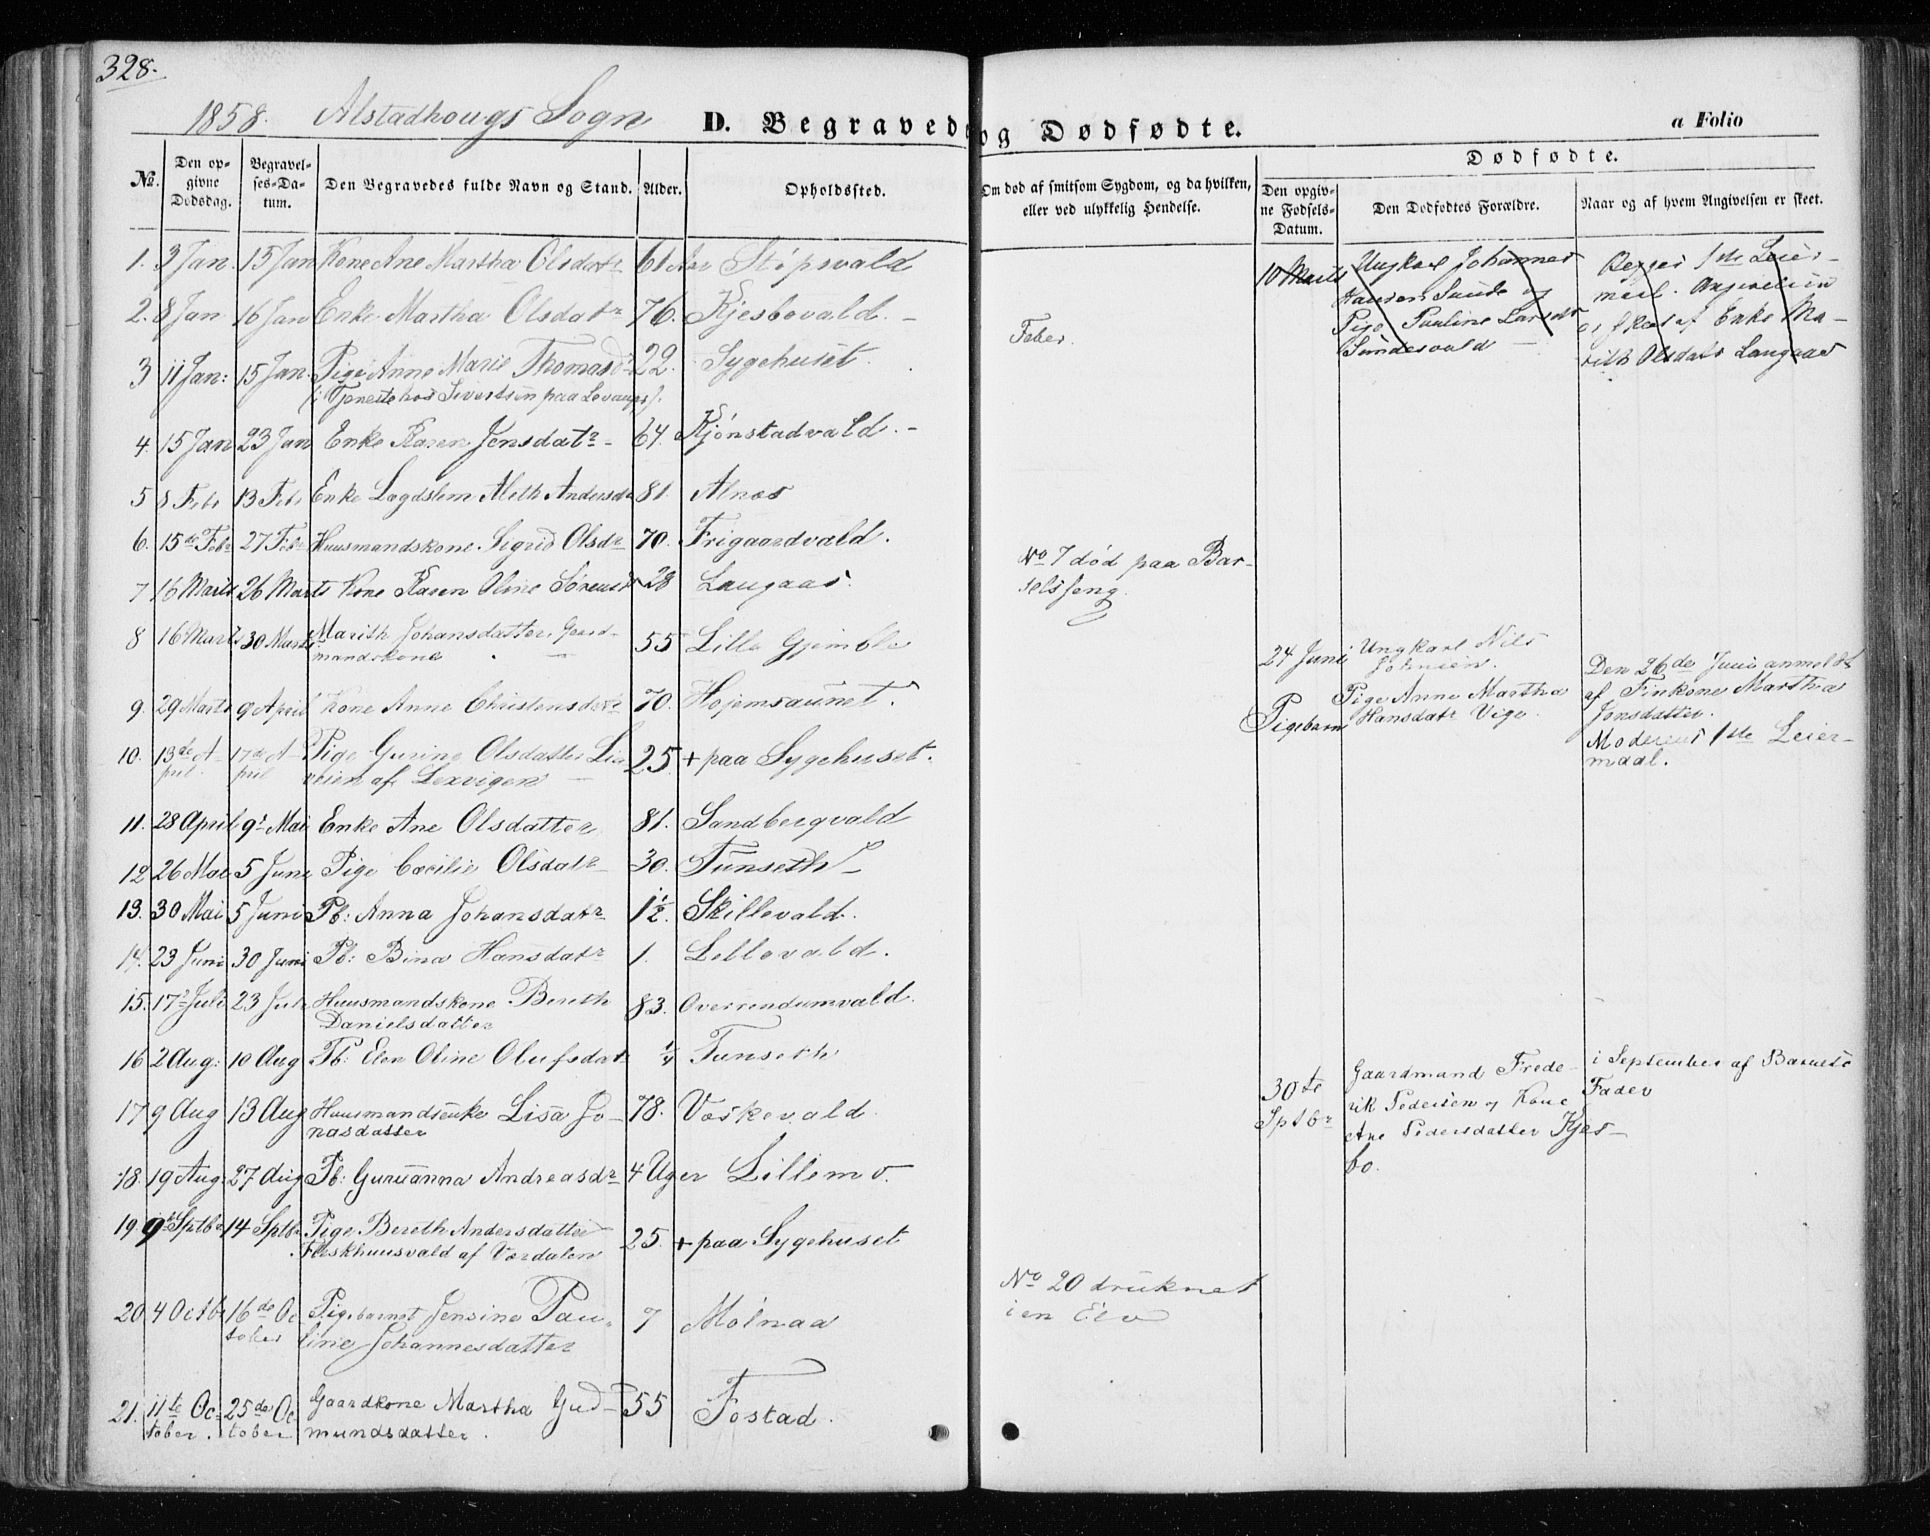 328.
1858. Alstadhougs Sogn D. Begravede og Dødfødte. a Folio
No. Den opgivne Dødsdag. Begravelses-Datum. Den Begravedes fulde Navn og Stand. Alder. Opholdssted. Om død af smitsom Sygdom, og da hvilken, eller ved ulykkelig Hendelse. Dødfødte.
Den opgivne Fødsels-Datum. Den Dødfødtes Forældre. Naar og af hvem Angivelsen er skeet.
1. 3 Jan. 15 Jan Kone Ane Martha Olsdatr 61 Aar Stöpsvald
2. 8 Jan 16 Jan Enke Martha Olsdatr 76. Kjesbovald. -
3 11 Jan: 15 Jan. Pige Anne Marie Thomasd 22. Sygehuset. Feber.
(: Tjeneste hos Sivertsen paa Levanger).
4. 15 Jan 23 Jan Enke Karen Jensdatr - 64. Kjönstadvald. -
5 8 Febr 13 Febr Enke Lægdslem Aleth Andersdr 81. Alnes
6. 15de Febr 27 Febr Huusmandskone Sigrid Olsdr 70. Frigaardvald.
7 16 Marts 26 Marts Kone Karen Oline Sörensdr 28 Laugaas. No 7 död paa Bar-
selsseng.
8 16 Marts 30 Marts Marith Johansdatter, Gaard- 55 Lille Gjemble
mandskone
9. 29 Marts 9 April Kone Anne Christensdatr 70. Hojemsaunet.
10. 13de A- 17de A- Pige Gurine Olsdatter 25 + paa Sygehuset.
pril. pril af Lexvigen
11. 28 April 9 Mai Enke Ane Olsdatter 81. Sandbergvald
12 26 Mai 5 Juni Pige Cæcilie Olsdatr 30. Tunseth -
13. 30 Mai 5 Juni Pb: Anna Johansdatr 1½. Skillevald.
14. 23 Juni 30 Juni Pb: Bina Hansdatr 1. Lellovald.
15. 17 Juli 23 Juli Huusmandskone Bereth 83. Overrendumvald.
Danielsdatter
16 2 Aug: 10 Aug Pb: Elen Oline Olufsdatr ¼ Tunseth
17 9 Aug 13 Aug Huusmandsenke Lisa Jo- 78. Voskevald.
nasdatter
18. 19 Aug. 27 Aug Pb: Guruanna Andreasdr 4 Uger Lillemo.
19. 9 Sptbr 14 Sptbr Pige Bereth Andersdatter 25. + paa Sygehuset
Fleskhuusvald af Værdalen
20 4 Octbr 16de Oc Pigebarnet Jensine Pau- 7 Mölnaa No 20 druknet
tober line Johannesdatter i en Elv
21. 11te Oc- 25de Oc Gaardkone Martha Gud- 55 Fostad.
tober. tober mundsdatter.
10 Marts Ungkarl Johannes Begges 1ste Leier-
Hansen Sunde og maal. Angivelsen
Pige Pauline Larsdr er skeet af Enke Ma-
Sundesvald - rith Olsdatr Laugaas
24 Juni Ungkarl Nils
Johnsen. Den 26de Juni anmeldt
Pigebarn Pige Anne Martha af Finkone Martha
Hansdatr Vige. Jonsdatter.
Moderens 1ste Leier-
maal.
30te Gaardmand Frede- i September af Barnets
Sptbr rik Pedersen og Kone Fader
Ane Pedersdatter Kjes-
bo.